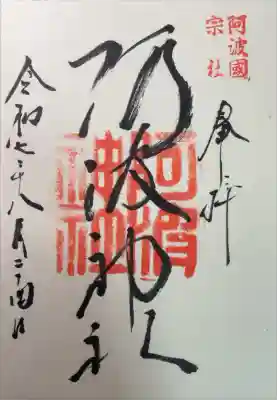 阿波國
宗社
奉拝
阿波神社
阿波
神社
令和七年八月二十四日